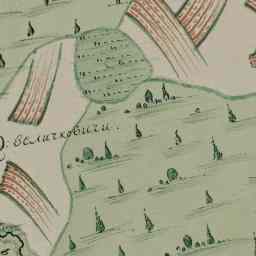 Д: величковичи.